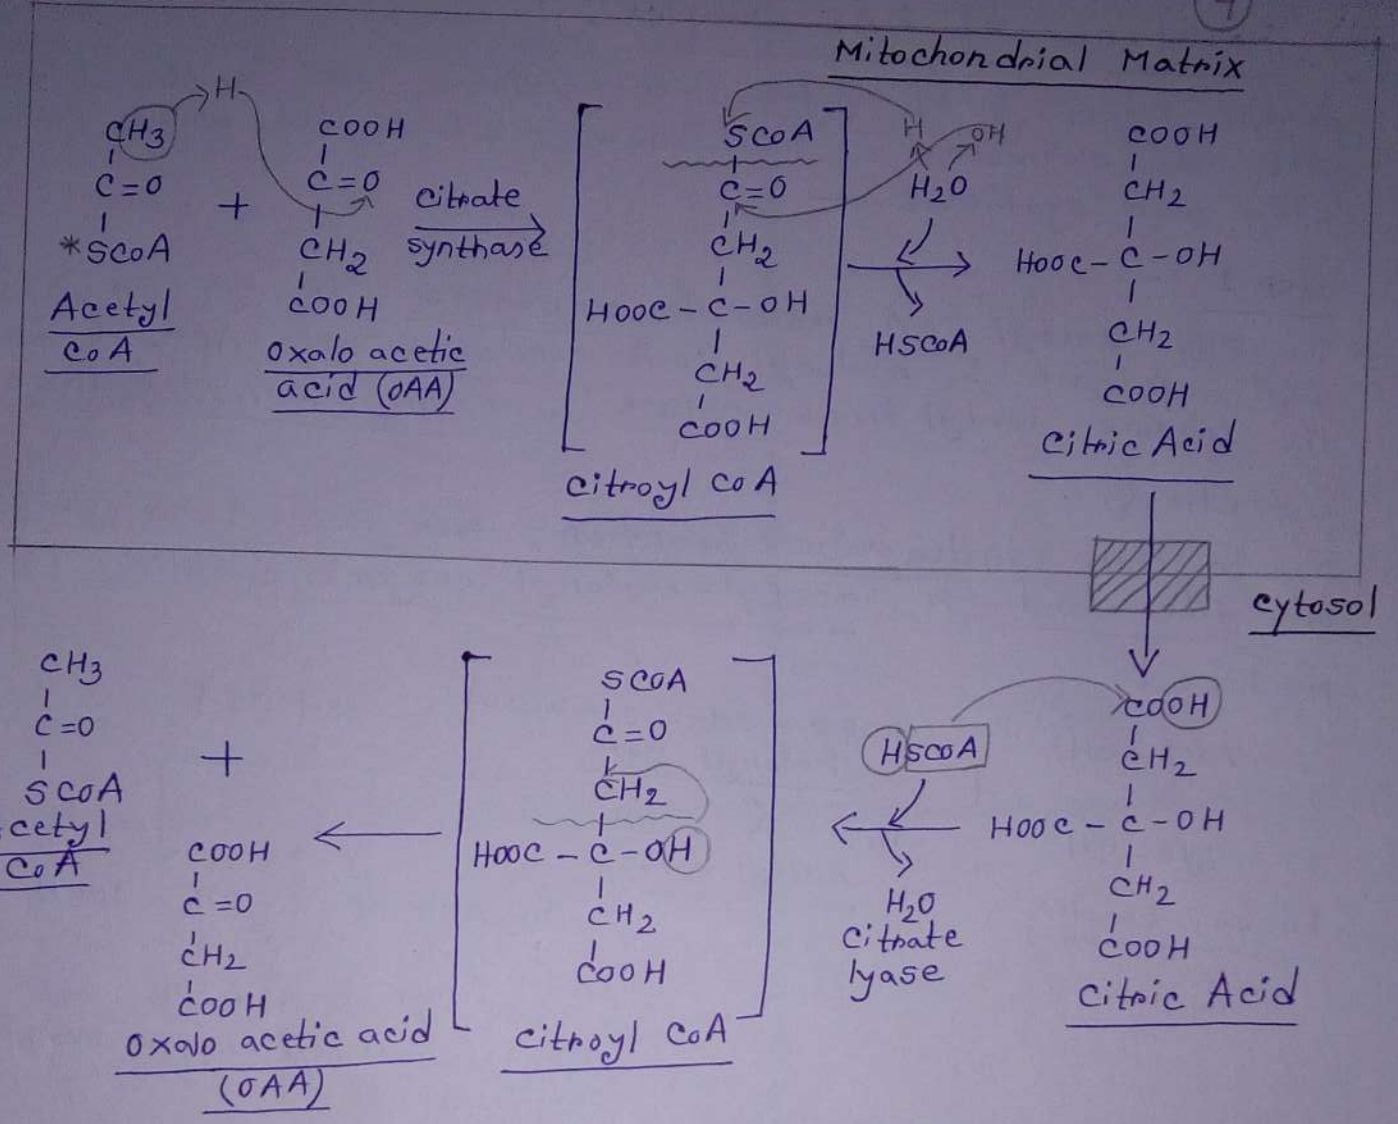 4
Mitochondrial Matrix
H
CH3
C=O
*SCoA
Acetyl
CoA
+
COOH
C=O
CH2
COOH
Oxalo acetic
acid (OAA)
Citrate
synthase
SCoA
C=O
CH2
HOOC-C-OH
CH2
COOH
Citroyl CoA
H OH
H2O
HSCoA
COOH
CH2
HOOC-C-OH
CH2
COOH
Citric Acid
Cytosol
COOH
CH2
HOOC-C-OH
CH2
COOH
Citric Acid
HSCoA
H2O
Citrate
lyase
SCoA
C=O
CH2
HOOC-C-OH
CH2
COOH
Citroyl CoA
CH3
C=O
SCoA
cetyl
CoA
+
COOH
C=O
CH2
COOH
Oxalo acetic acid
(OAA)